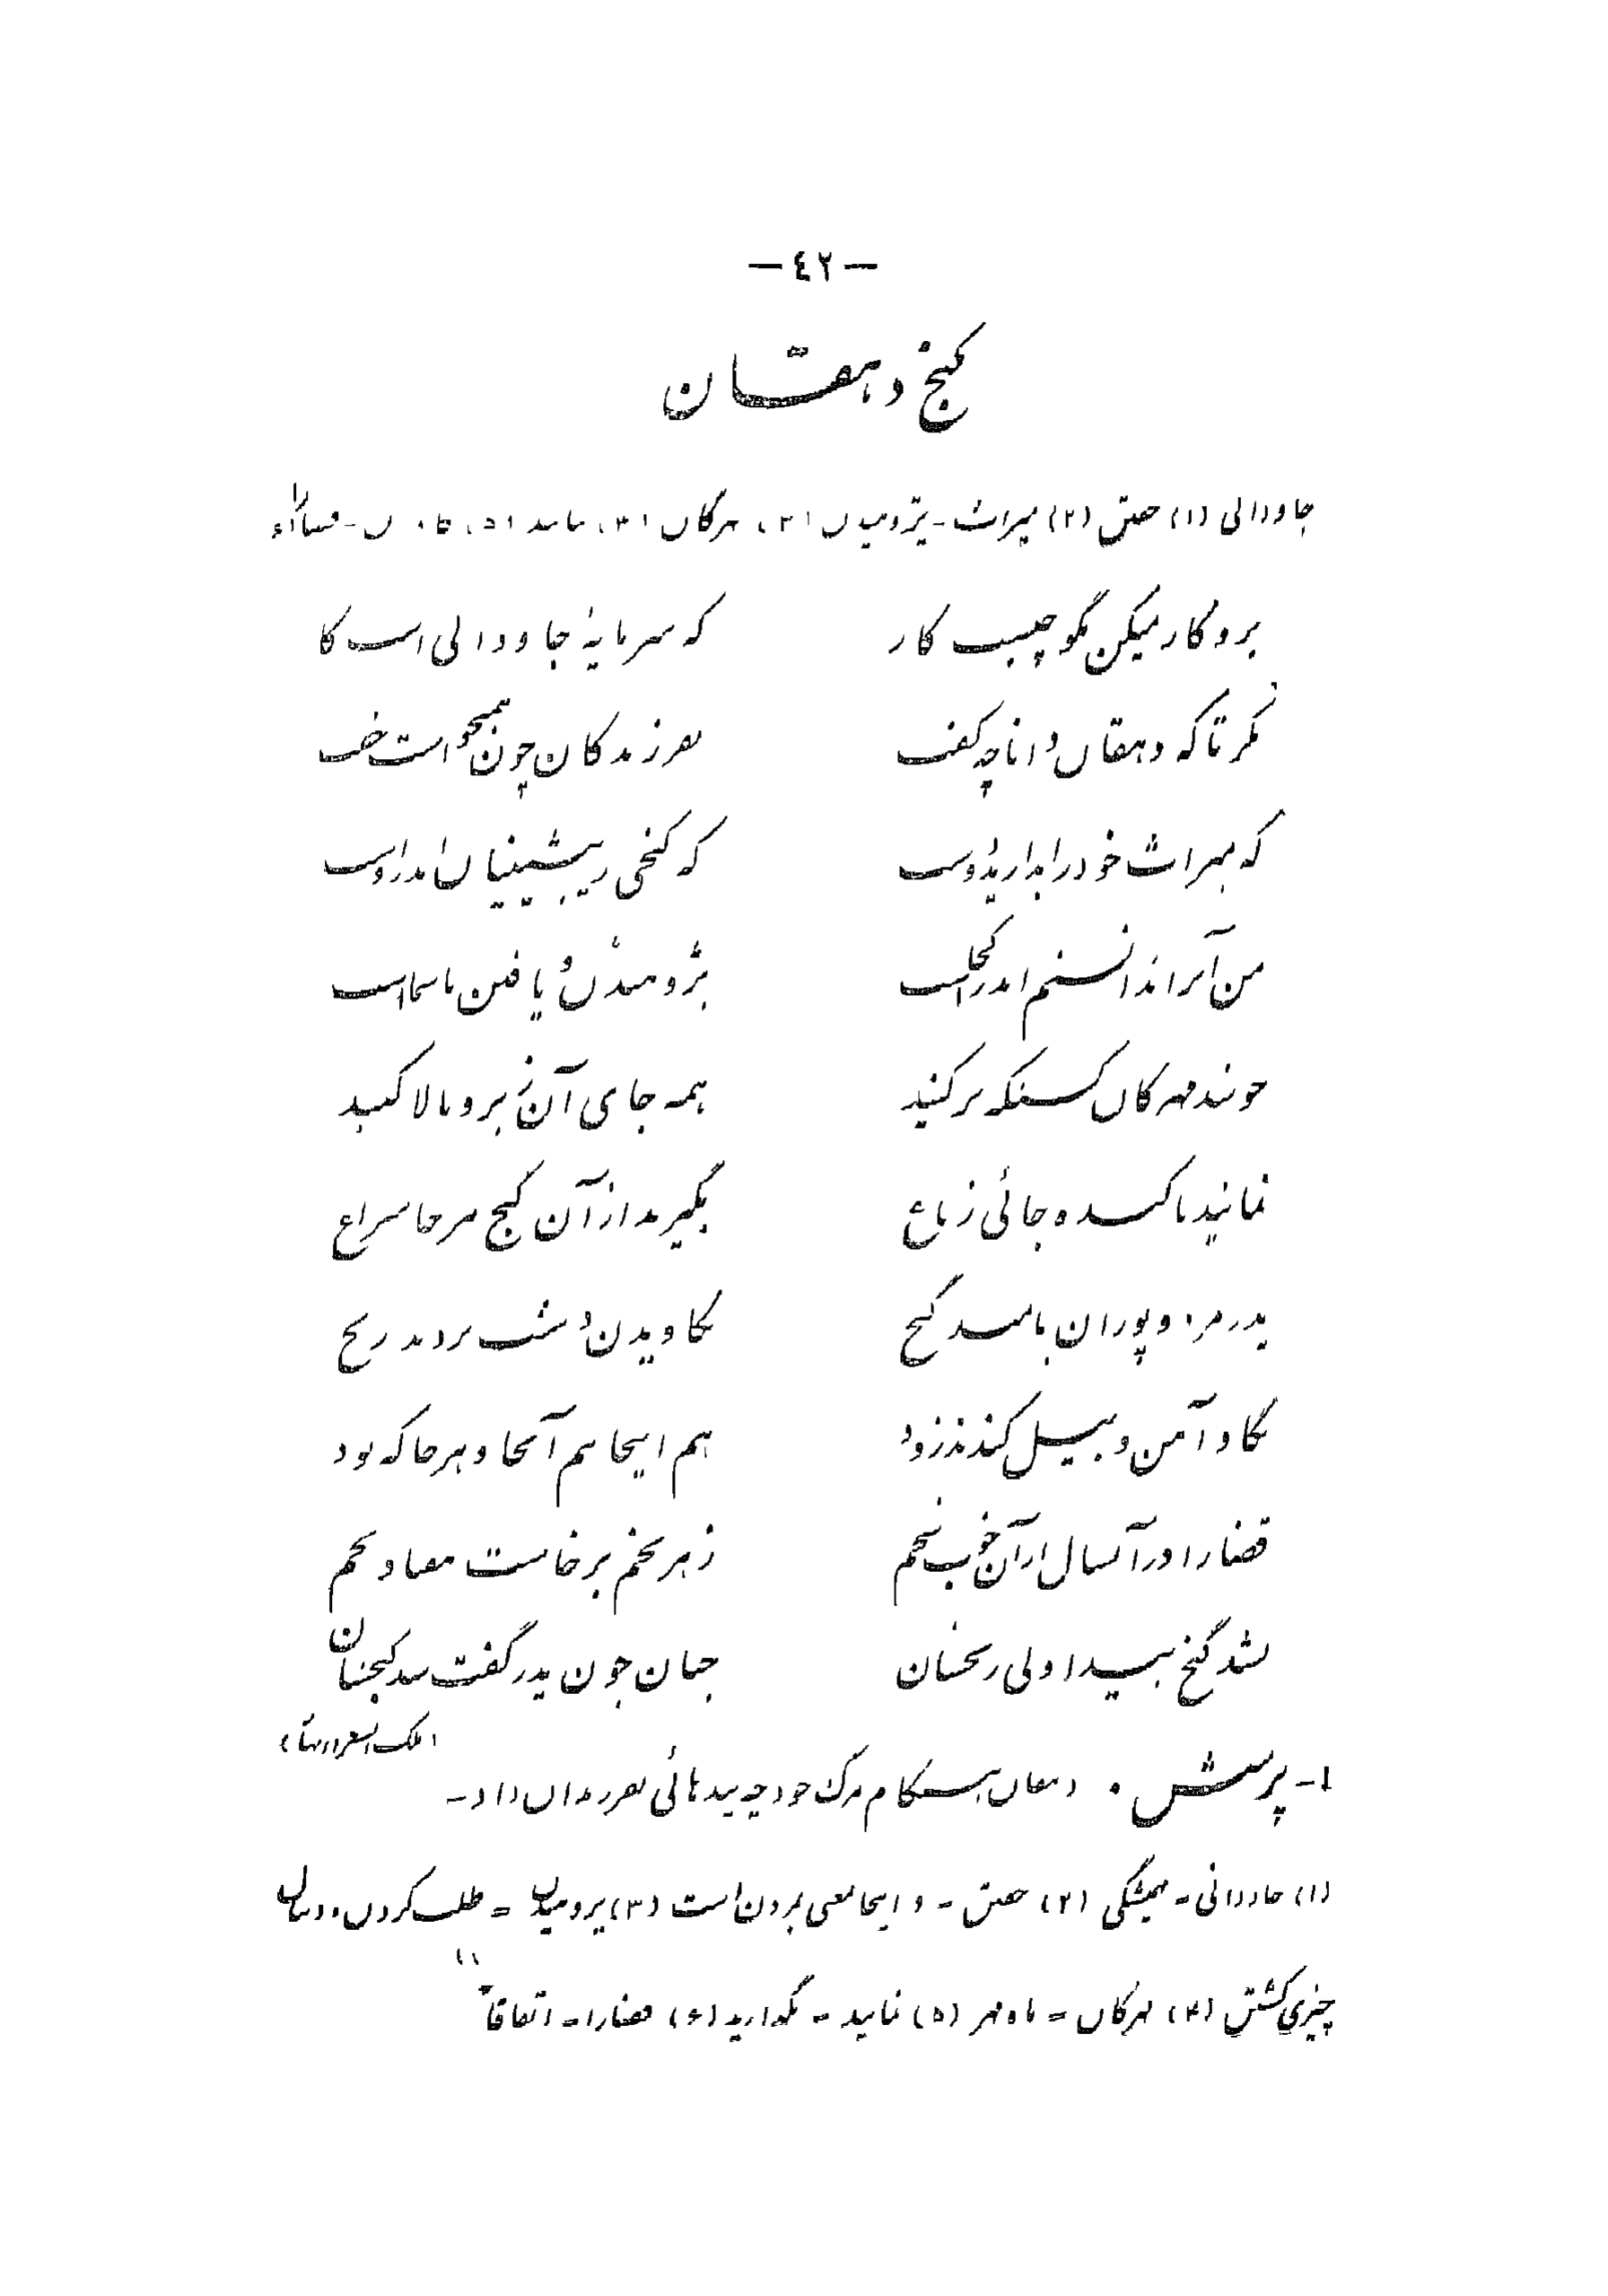 — ٤٢ —
گنج دهقان
جاودانی (۱) خفتن (۲) میراث - پژوهیدن (۳) مهرگان (۴) نمانید (۵) کاویدن - قضا را
برو کار میکن مگو چیست کار که سرمایهٔ جاودانی است کار
نگر تا که دهقان دانا چه گفت بفرزندگان چون همیخواست خفت
که میراث خود را بدارید دوست که گنجی ز پیشینیان اندر اوست
من آنرا ندانستم اندر کجاست پژوهیدن و یافتن با شماست
چو شد مهرگان کشتگه بر کنید همه جای آن زیر و بالا کنید
نمانید ناکنده جائی ز باغ بگیرید از آن گنج هر جا سراغ
پدر مرد و پوران بامید گنج بکاویدن دشت بردند رنج
بگاو آهن و بیل کندند زود هم اینجا هم آنجا و هرجا که بود
قضا را در آنسال از آن خوب شخم ز هر تخم برخاست هفتاد تخم
نشد گنج پیدا ولی رنجشان چنان چون پدر گفت شد گنجشان
(ملک الشعراء بهار)
۱- پرسش . دهقان هنگام مرگ خود چه پندهائی بفرزندان داد -
(۱) جاودانی - همیشگی (۲) خفتن - در اینجا بمعنی مردن است (۳) پژوهیدن = طلب کردن و دنبال
چیزی گشتن (۴) مهرگان = ماه مهر (۵) نمانید - نگذارید (۶) قضا را - اتفاقاً